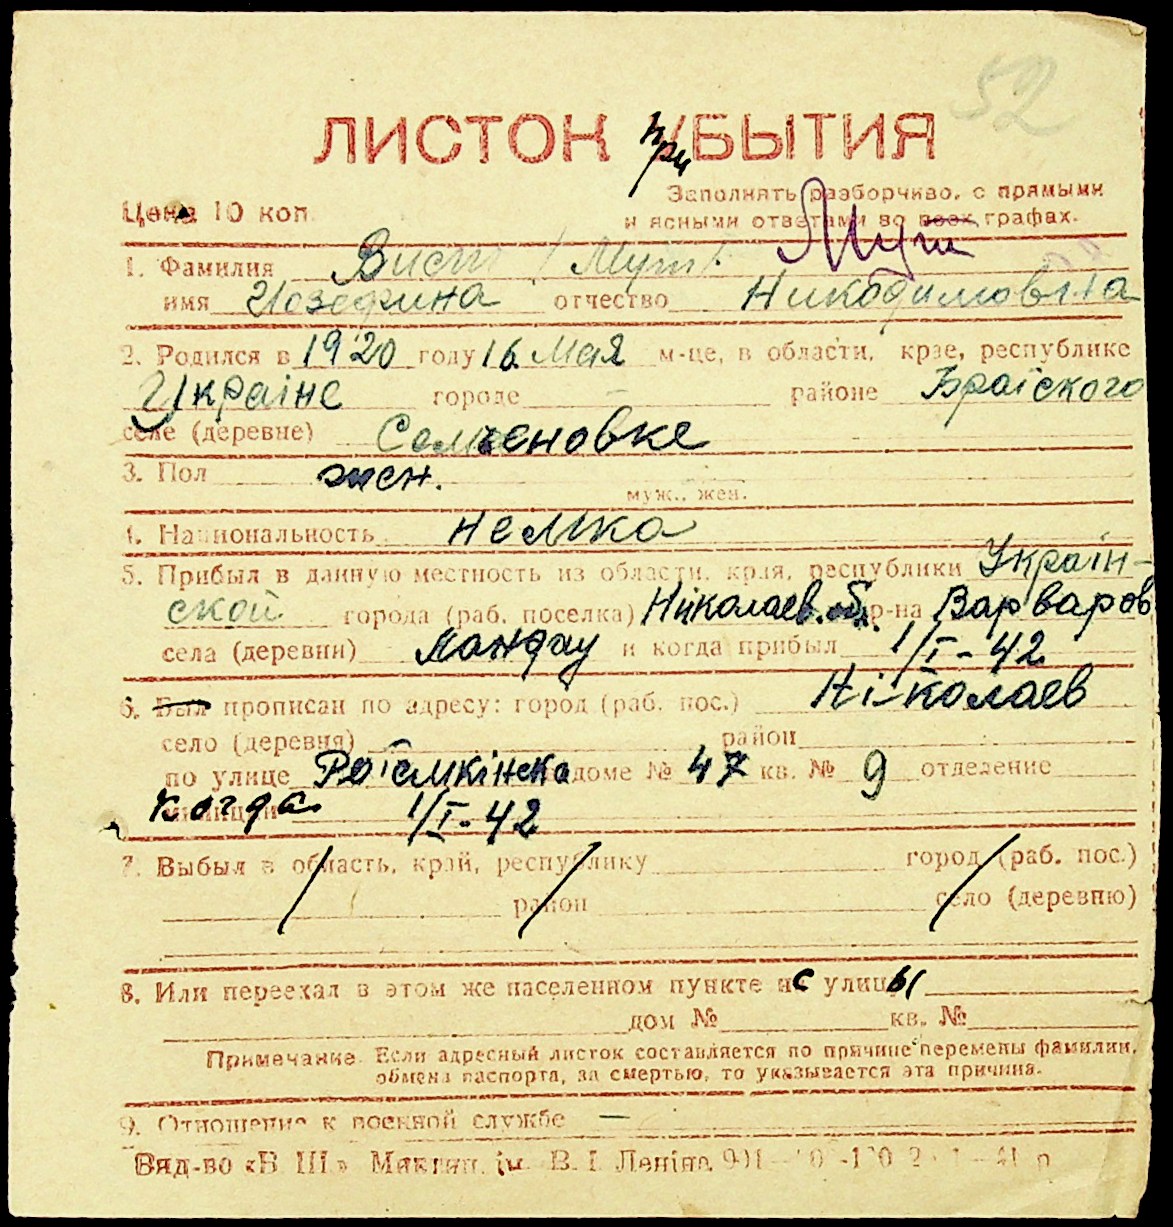 52
ЛИСТОК при БЫТИЯ
Заполнять разборчиво, с прямыми
Цена 10 коп.
и ясными ответами во всех графах.
Мут
1. Фамилия Вист (Мут)
имя Иозефина отчество Никодимовна
2. Родился в 1920 году 16 Мая м-це, в области, крае, республике
Украіне городе — районе Браїского
селе (деревне) Семеновке
3. Пол жен.
муж., жен.
4. Национальность немка
5. Прибыл в данную местность из области, края, республики Україн-
ской города (раб. поселка) Ніколаев. обл. р-на Варваров
села (деревни) Ландау и когда прибыл 1/I-42
6. Был прописан по адресу: город (раб. пос.) Ні-колаев
село (деревня) район
по улице Потемкінска доме № 47 кв. № 9 отделение
милиции когда 1/I-42
7. Выбыл в область, край, республику город (раб. пос.)
район село (деревню)
8. Или переехал в этом же населенном пункте с улицы
дом № кв. №
Примечание. Если адресный листок составляется по причине перемены фамилии,
обмена паспорта, за смертью, то указывается эта причина.
9. Отношение к военной службе —
Вид-во «Б. Ш.» Микол. ім. В. І. Леніна